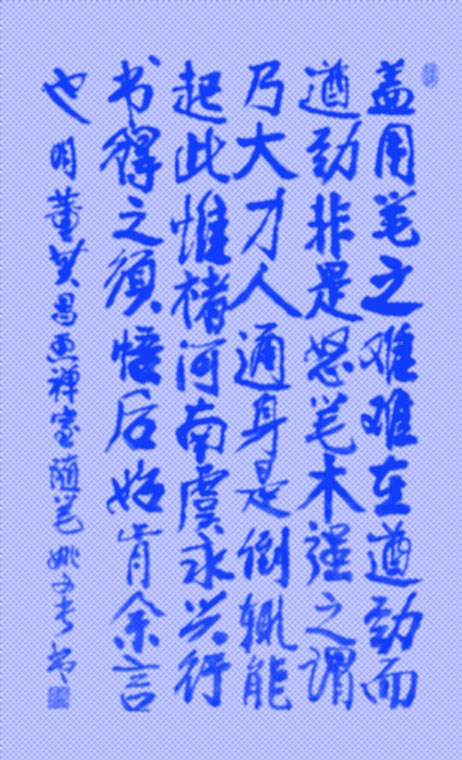 盖用笔之难难在遒劲而
遒劲非是怒笔木强之谓
乃大才人通身是倒辄能
起此惟褚河南虞永兴行
书得之须悟后始肯余言
也 明董其昌画禅室随笔 姚
书